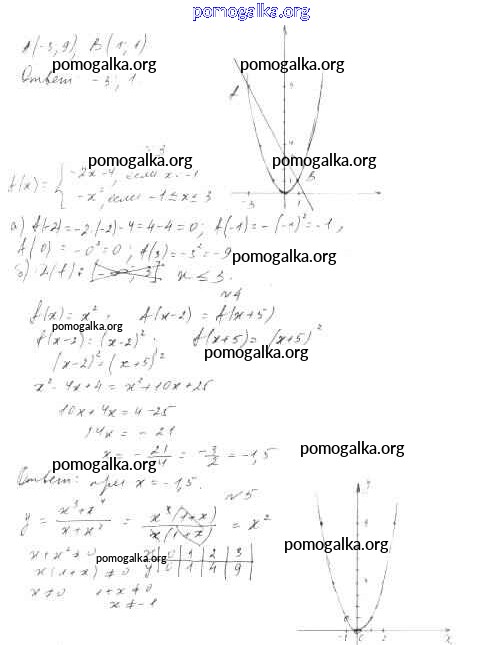 pomogalka.org
A(-3; 9), B(1; 1)
pomogalka.org
Ответ: -3; 1
pomogalka.org
A
B
-3
0
1
3
pomogalka.org
f(x) = { -2x-4, если x<-1
-x², если -1≤x≤3
а) f(-2)=-2·(-2)-4=4-4=0; f(-1)=-(-1)²=-1;
f(0)=-0²=0; f(3)=-3²=-9
pomogalka.org
x ≤ 3.
№4
f(x)=x², f(x-2)=f(x+5)
pomogalka.org
f(x-2)=(x-2)²; f(x+5)=(x+5)²
pomogalka.org
(x-2)²=(x+5)²
x²-4x+4=x²+10x+25
10x+4x=4-25
14x=-21
x=-21/14=-3/2=-1,5
pomogalka.org
Ответ: при x=-1,5.
pomogalka.org
№5
y=(x³+x⁴)/(x+x²)=x³(1+x)/x(1+x)=x²
pomogalka.org
x+x²≠0
x 0 1 2 3
pomogalka.org
x(1+x)≠0
y 0 1 4 9
x≠0 1+x≠0
x≠-1
y
-1 0 2 x